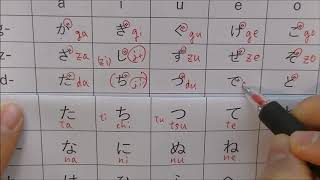 a i u e o
g- が ga ぎ gi ぐ gu げ ge ご go
ざ za (zi) じ (ji) ず zu ぜ ze ぞ zo
d- だ da (ぢ (ji)) づ du で ど
た ta ti ち chi tu つ tsu て te
な na に ni ぬ nu ね ne